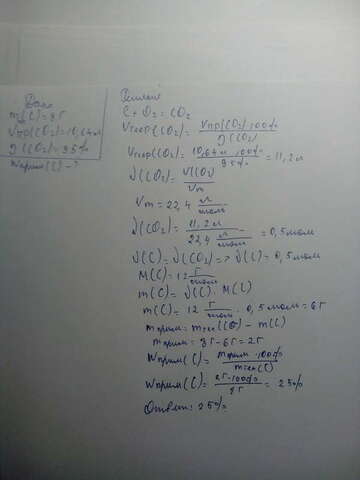 Дано
m(C)=8г
Vпр(CO₂)=10,64л
η(CO₂)=95%
wприм(C)-?
Решение
C+O₂=CO₂
Vтеор(CO₂)=Vпр(CO₂)·100%/η(CO₂)
Vтеор(CO₂)=10,64л·100%/95%=11,2л
ν(CO₂)=V(CO₂)/Vm
Vm=22,4 л/моль
ν(CO₂)=11,2л/22,4 л/моль=0,5моль
ν(C)=ν(CO₂)=>ν(C)=0,5моль
M(C)=12 г/моль
m(C)=ν(C)·M(C)
m(C)=12 г/моль·0,5моль=6г
mприм=mтех(C)-m(C)
mприм=8г-6г=2г
wприм(C)=mприм·100%/mтех(C)
wприм(C)=2г·100%/8г=25%
Ответ: 25%